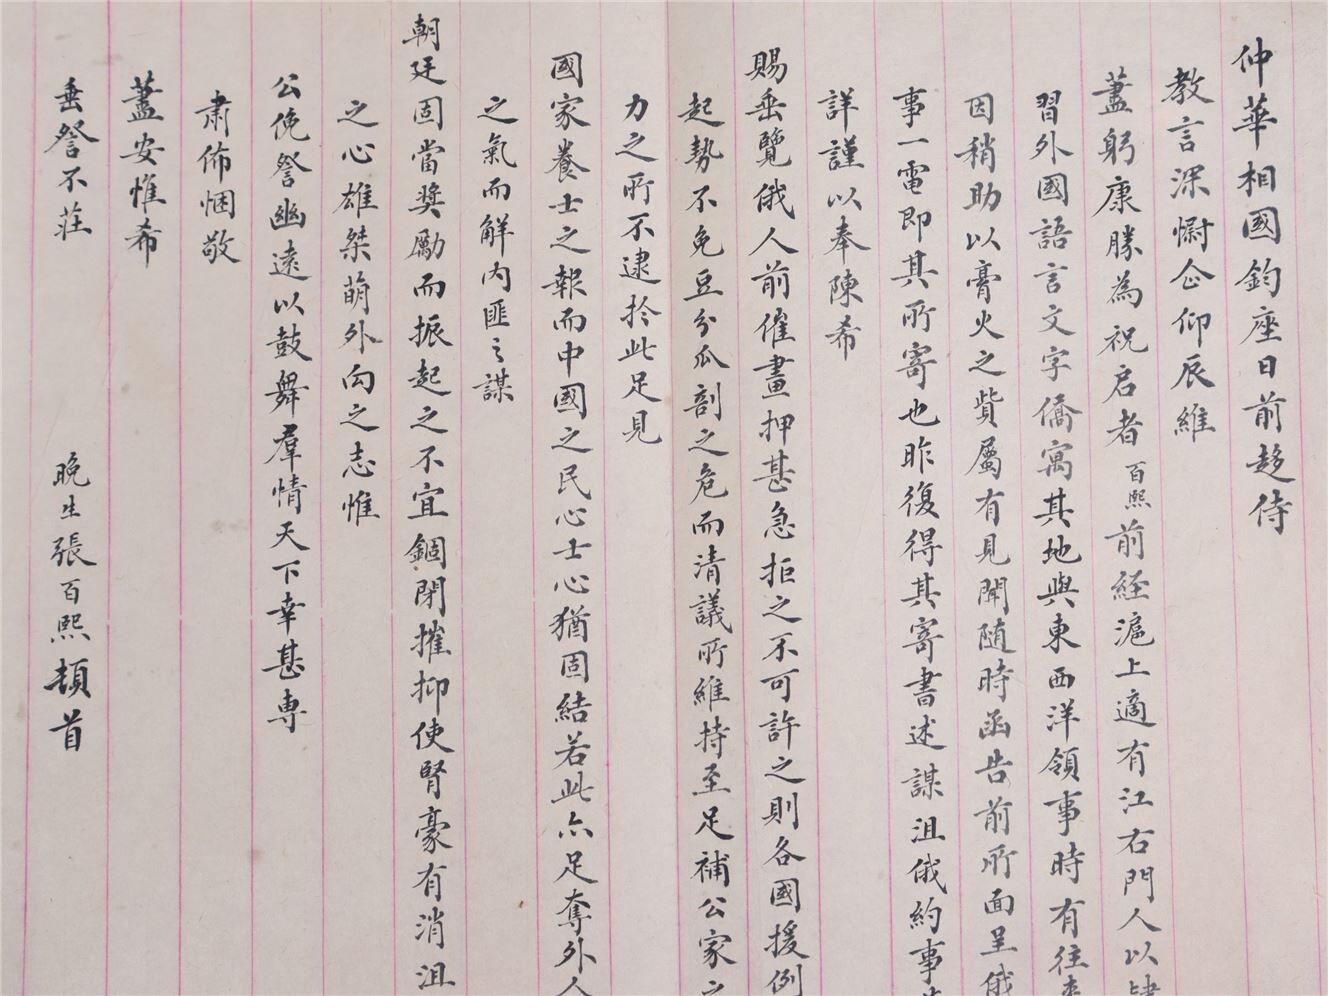 仲華相國鈞座日前趨侍
教言深慰企仰辰維
藎躬康勝為祝启者百熙前経滬上適有江右門人以肄
習外國語言文字僑寓其地與東西洋領事時有往来
因稍助以膏火之貲屬有見聞随時函告前所面呈俄
事一電即其所寄也昨復得其寄書述謀沮俄約事
詳謹以奉陳希
賜垂覽俄人前催畫押甚急拒之不可許之則各國援例
起勢不免豆分瓜剖之危而清議所維持至足補公家之
力之所不逮扵此足見
國家養士之報而中國之民心士心猶固結若此亦足奪外人
之氣而解内匪之謀
朝廷固當奬勵而振起之不宜錮閉摧抑使賢豪有消沮
之心雄桀萌外向之志惟
公俛詧幽遠以鼓舞羣情天下幸甚専
肅佈悃敬
藎安惟希
垂詧不莊
晚生張百熙頓首